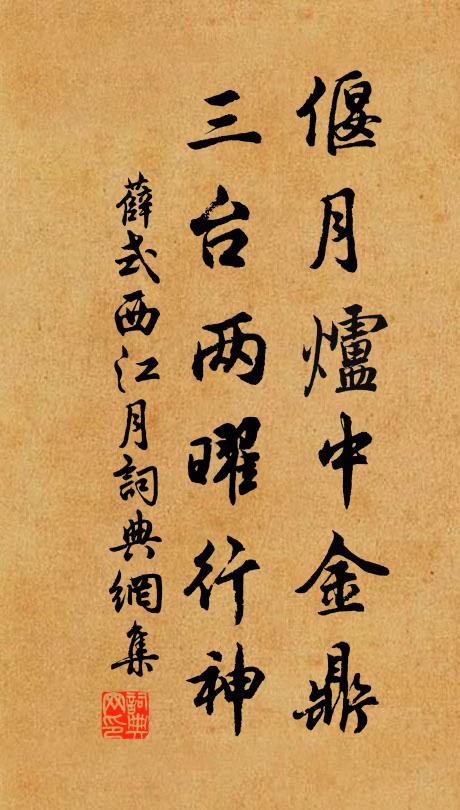 偃月爐中金鼎
三台两曜行神
薛式西江月詞典網集
詞典網印